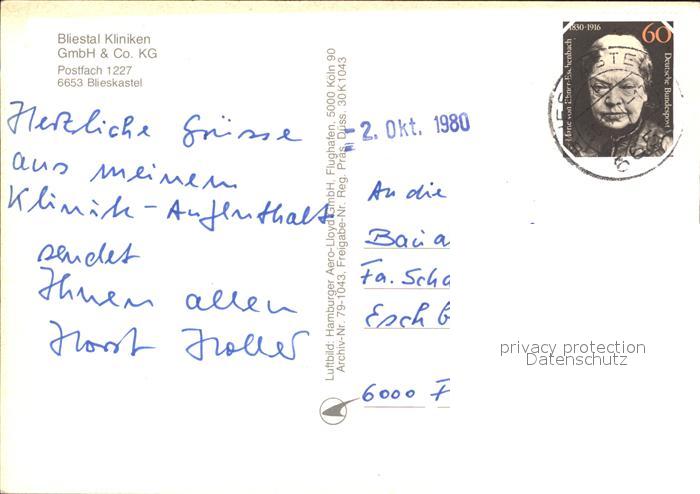 Bliestal Kliniken
GmbH & Co. KG
Postfach 1227
6653 Blieskastel
Herzliche Grüsse
aus meinem
Klinik-Aufenthalt
sendet
Ihnen allen
Horst Holler
Luftbild: Hamburger Aero-Lloyd GmbH, Flughafen, 5000 Köln 90
Archiv-Nr. 79-1043, Freigabe-Nr. Reg. Präs. Düss. 30K1043
2. Okt. 1980
1830-1916
60
Marie von Ebner-Eschenbach
Deutsche Bundespost
An die
Baua
Fa. Scha
Esch b
6000 F
privacy protection
Datenschutz